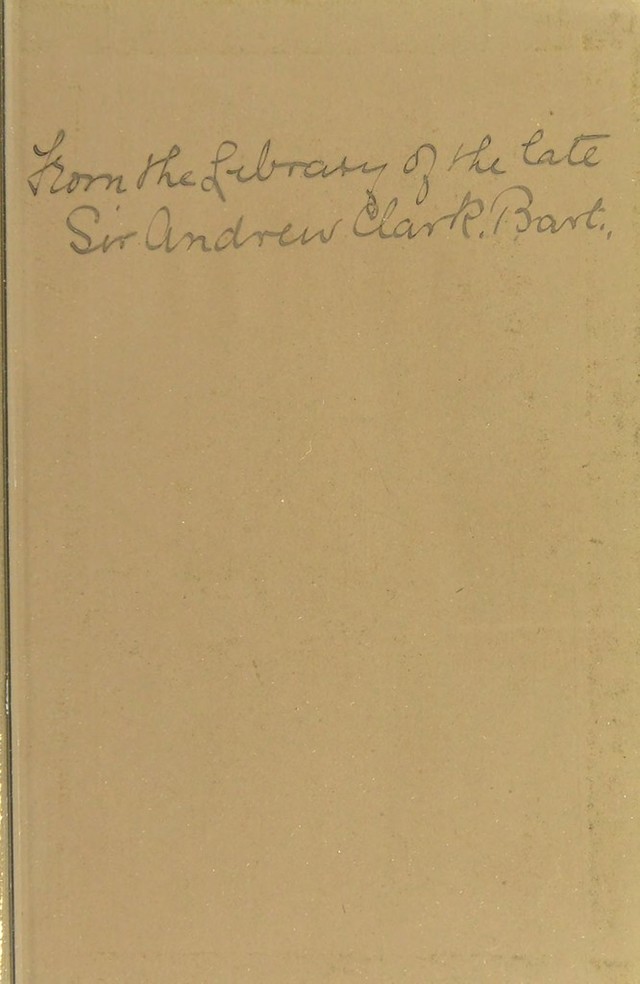 From the Library of the late
Sir Andrew Clark. Bart.,